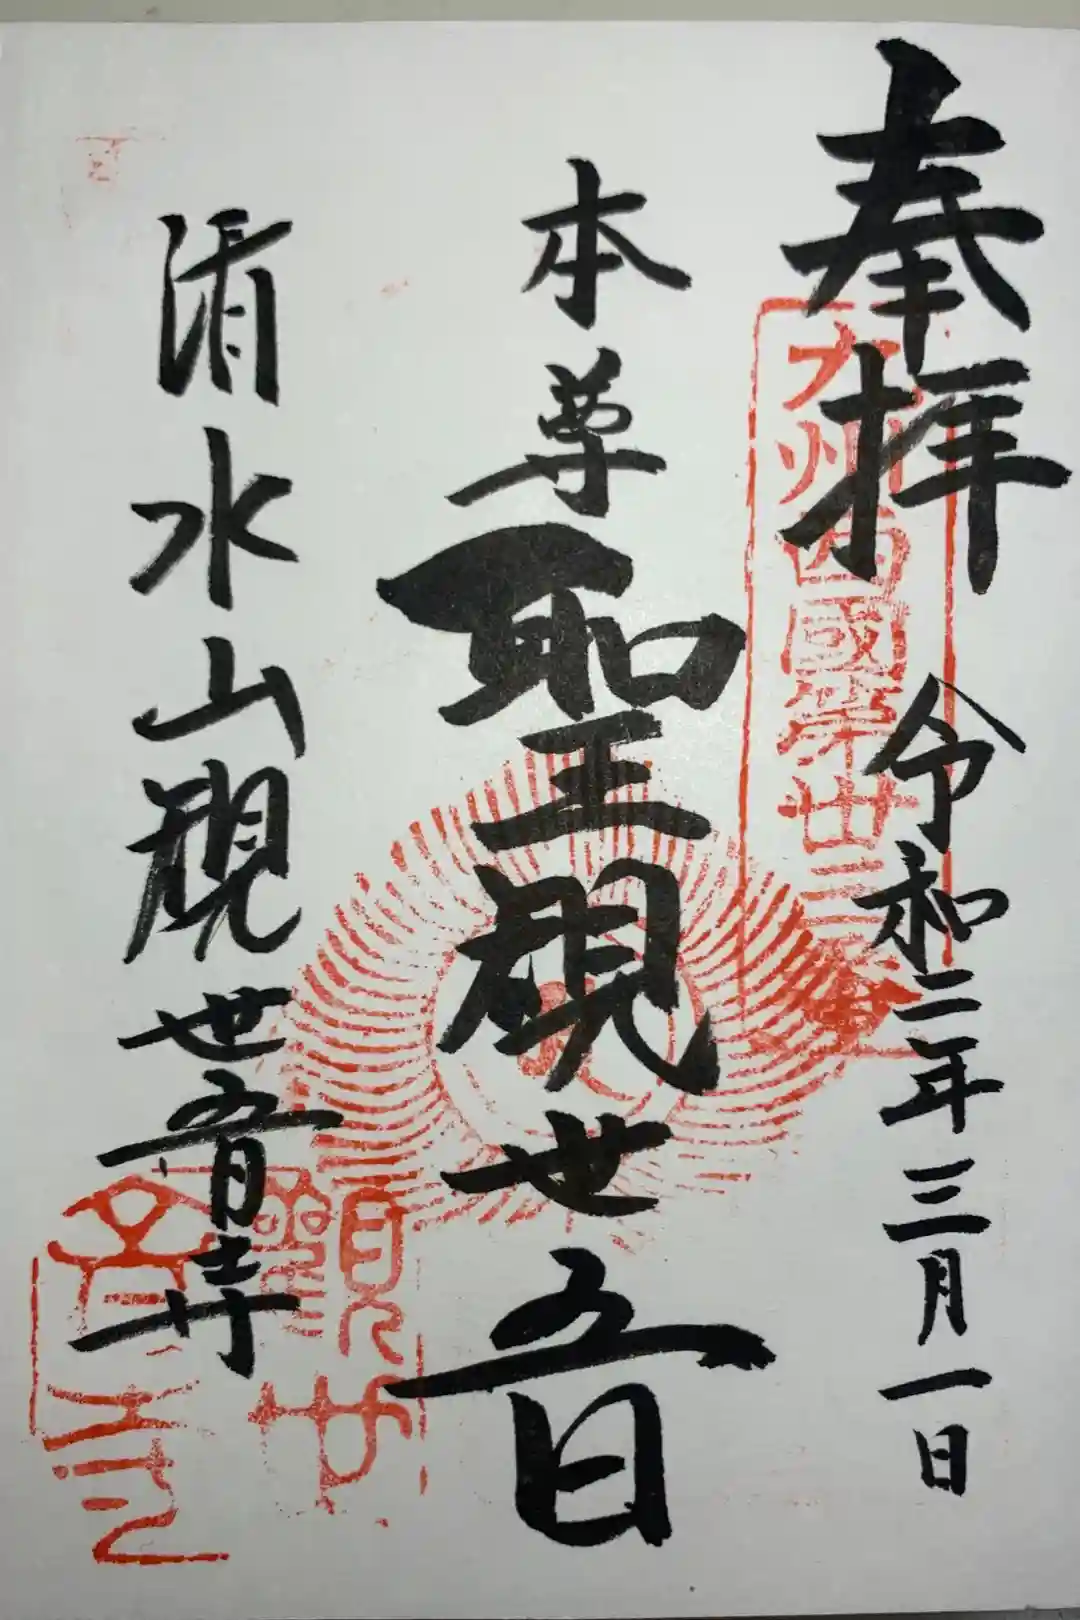 奉拝
令和二年三月一日
九州西國第廿三番
本尊
聖観世音
清水山観世音寺
観世音寺